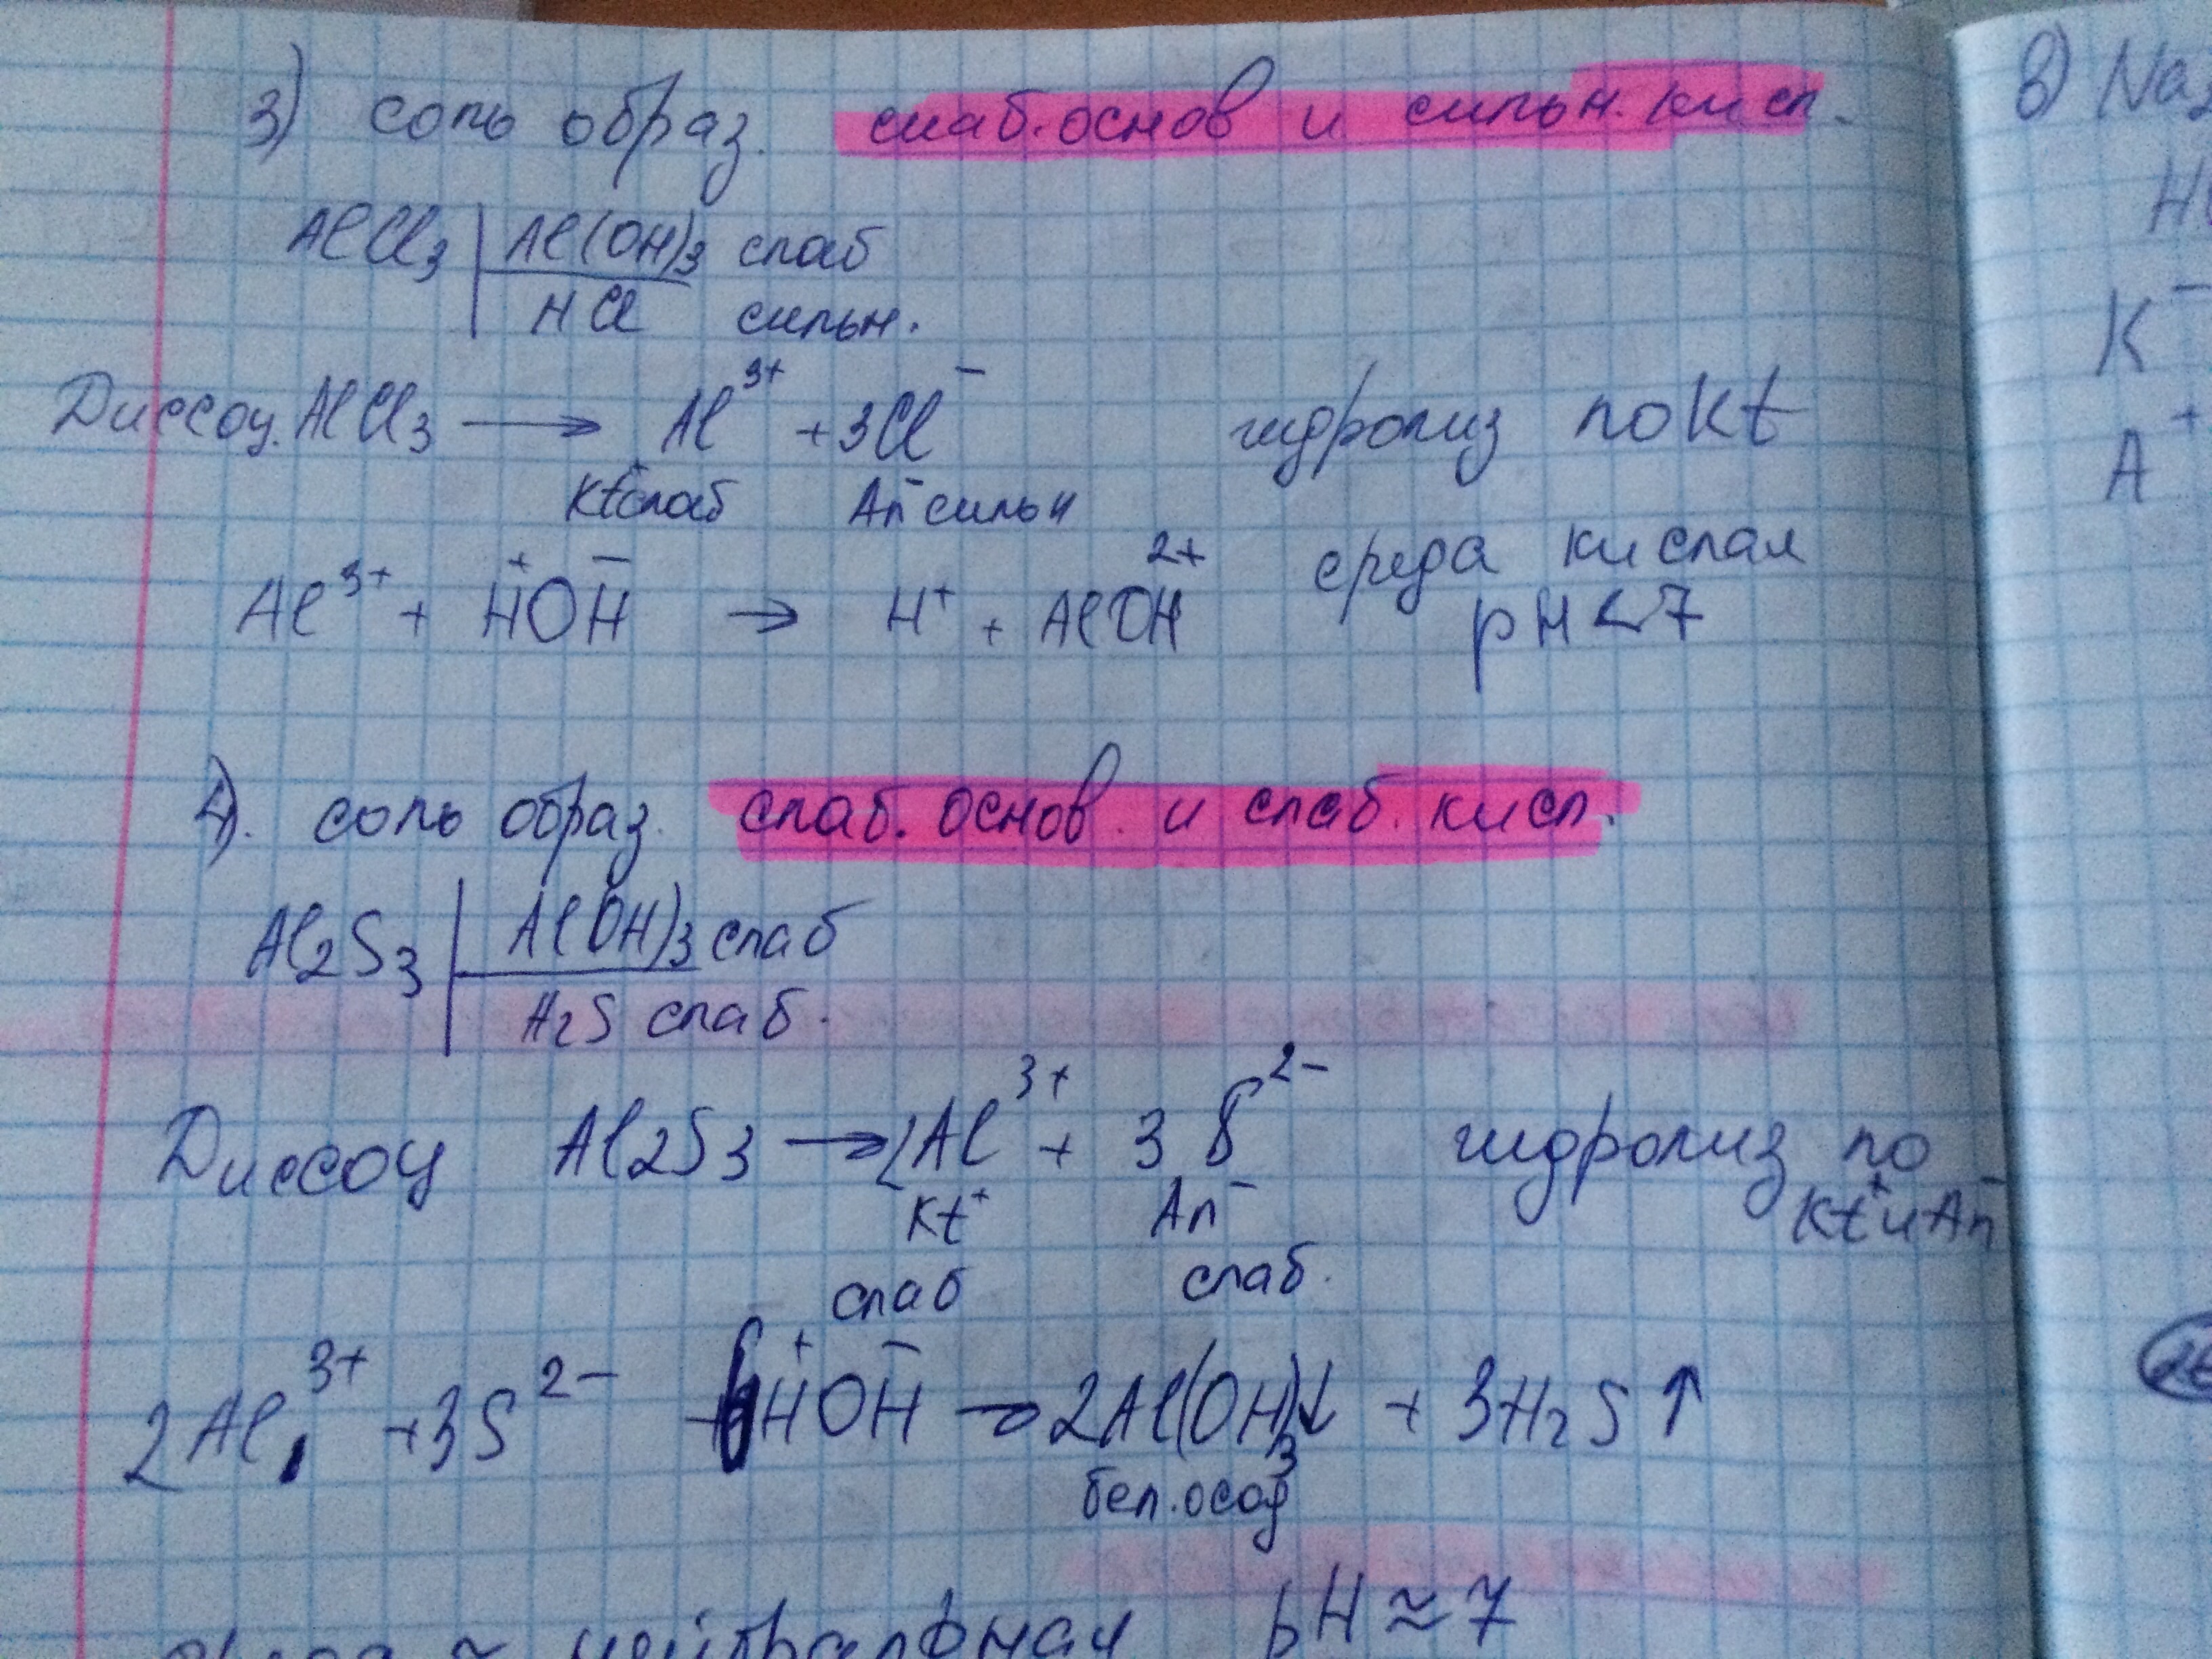 3) соль образ. слаб. основ и сильн. кисл.
AlCl3 | Al(OH)3 слаб
HCl сильн.
Диссоц. AlCl3 → Al³⁺ + 3Cl⁻ гидролиз по Kt
Kt⁺слаб An⁻сильн
Al³⁺ + H⁺OH⁻ → H⁺ + AlOH²⁺ среда кислая
pH < 7
4). соль образ. слаб. основ. и слаб. кисл.
Al2S3 | Al(OH)3 слаб
H2S слаб.
Диссоц Al2S3 → 2Al³⁺ + 3S²⁻ гидролиз по
Kt⁺ An⁻ Kt⁺ и An⁻
слаб слаб.
2Al³⁺ + 3S²⁻ + 6H⁺OH⁻ → 2Al(OH)3↓ + 3H2S↑
бел. осад
среда ≈ нейтральная pH ≈ 7
в) Na2
H
K⁻
A⁺